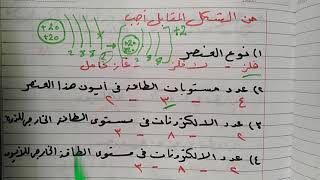 من الشكل المقابل أجب
+20
±20
2 8 8 2
+20
±20
2 8 8
+2
١) نوع العنصر
فلز - لا فلز - غاز خامل
٢) عدد مستويات الطاقة فى أيون هذا العنصر
٤ - ٣ - ٢
٣) عدد الالكترونات فى مستوى الطاقة الخارجى للذرة
٢ - ٨ - ٣
٤) عدد الالكترونات فى مستوى الطاقة الخارجى للأيون
٢ - ٨ - ٣